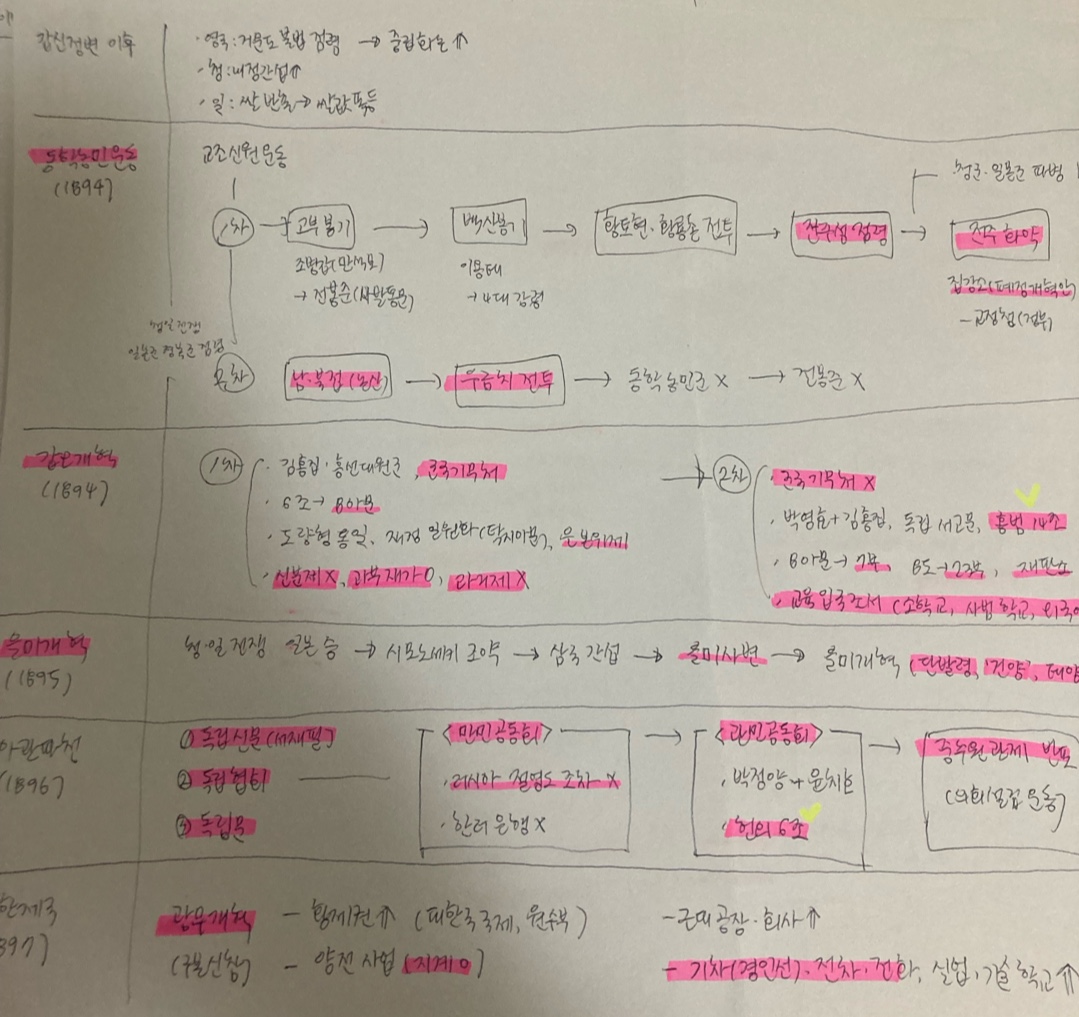 갑신정변 이후
· 영국 : 거문도 불법 점령 → 중립화론 ↑
· 청 : 내정간섭 ↑
· 일 : 쌀 반출 → 쌀값 폭등
동학농민운동
(1894)
교조신원운동
청군·일본군 파병
1차 → 고부봉기 → 백산봉기 → 황토현·황룡촌 전투 → 전주성 점령 → 전주 화약
조병갑(만석보)
→ 전봉준(사발통문)
이용태
→ 4대 강령
집강소(폐정개혁안)
- 교정청(정부)
청일전쟁
일본군 경복궁 점령
2차 남·북접(논산) → 우금치 전투 → 동학농민군 X → 전봉준 X
갑오개혁
(1894)
1차
· 김홍집·흥선대원군, 군국기무처
· 6조 → 8아문
· 도량형 통일, 재정 일원화(탁지아문), 은본위제
· 신분제 X, 과부재가 O, 과거제 X
→ 2차
· 군국기무처 X
· 박영효 + 김홍집, 독립 서고문, 홍범 14조
· 8아문 → 7부, 8도 → 23부, 재판소
· 교육입국조서 (소학교, 사범학교, 외국어
을미개혁
(1895)
청·일전쟁 일본 승 → 시모노세키 조약 → 삼국간섭 → 을미사변 → 을미개혁 (단발령, '건양', 태양
아관파천
(1896)
① 독립신문(서재필)
② 독립협회
③ 독립문
<만민공동회>
· 러시아 절영도 조차 X
· 한러은행 X
→ <관민공동회>
· 박정양 + 윤치호
· 헌의 6조
→ 중추원 관제 반포
(의회설립 운동)
한제국
897)
광무개혁
(구본신참)
- 황제권 ↑ (대한국 국제, 원수부)
- 양전 사업 (지계 O)
- 근대 공장·회사 ↑
- 기차(경인선)·전차·전화, 실업·기술 학교 ↑